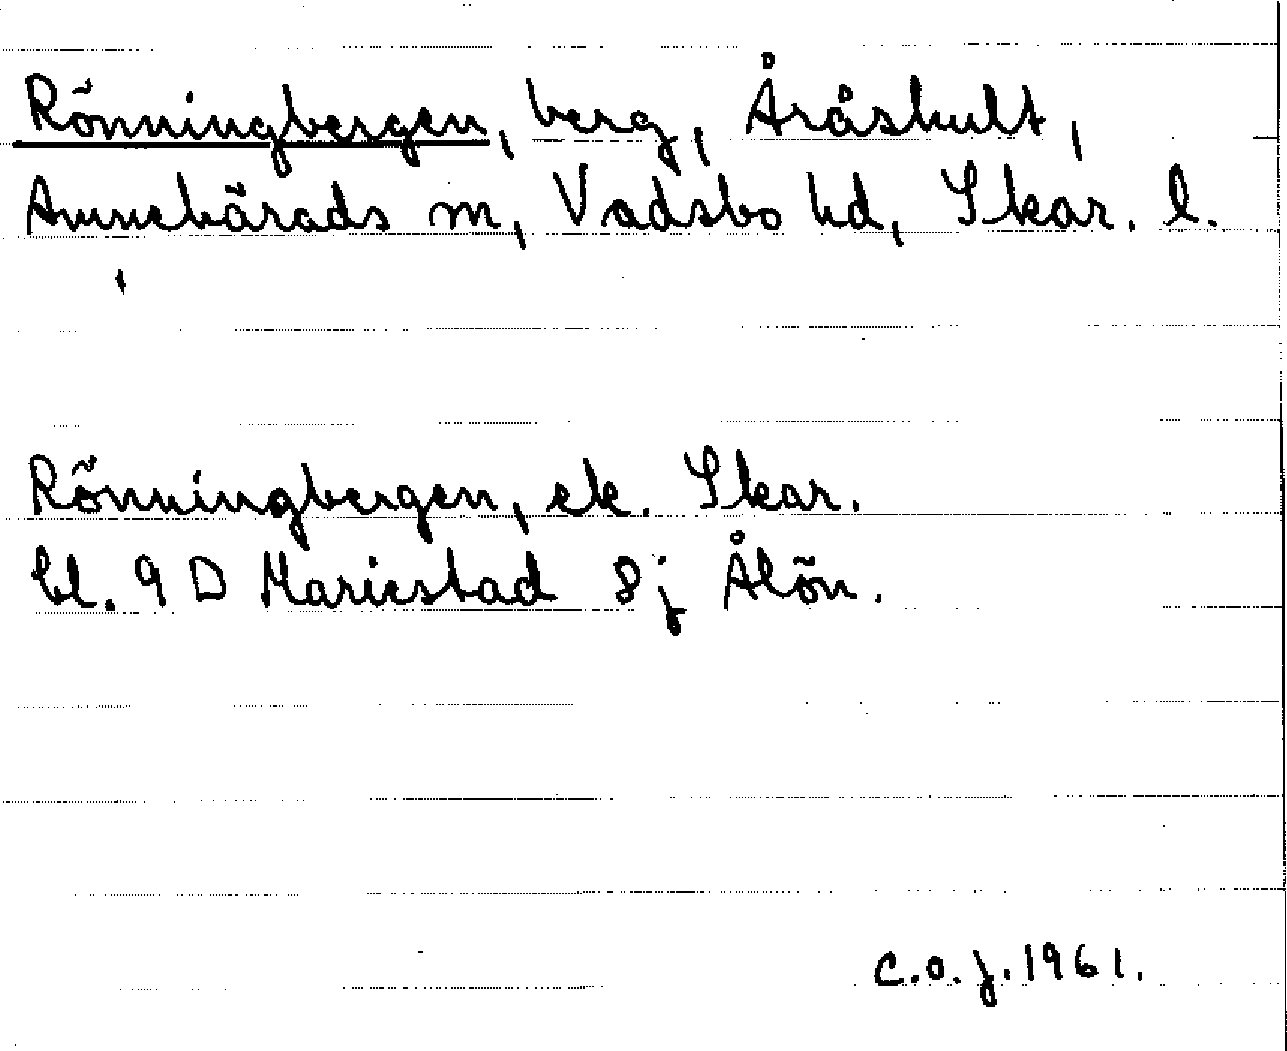 Rönningbergen, berg, Åråshult,
Amnehärads sn, Vadsbo hd, Skar. l.
Rönningbergen, ek. Skar.
bl. 9 D Mariestad 8j Ålön.
C.O.J. 1961.